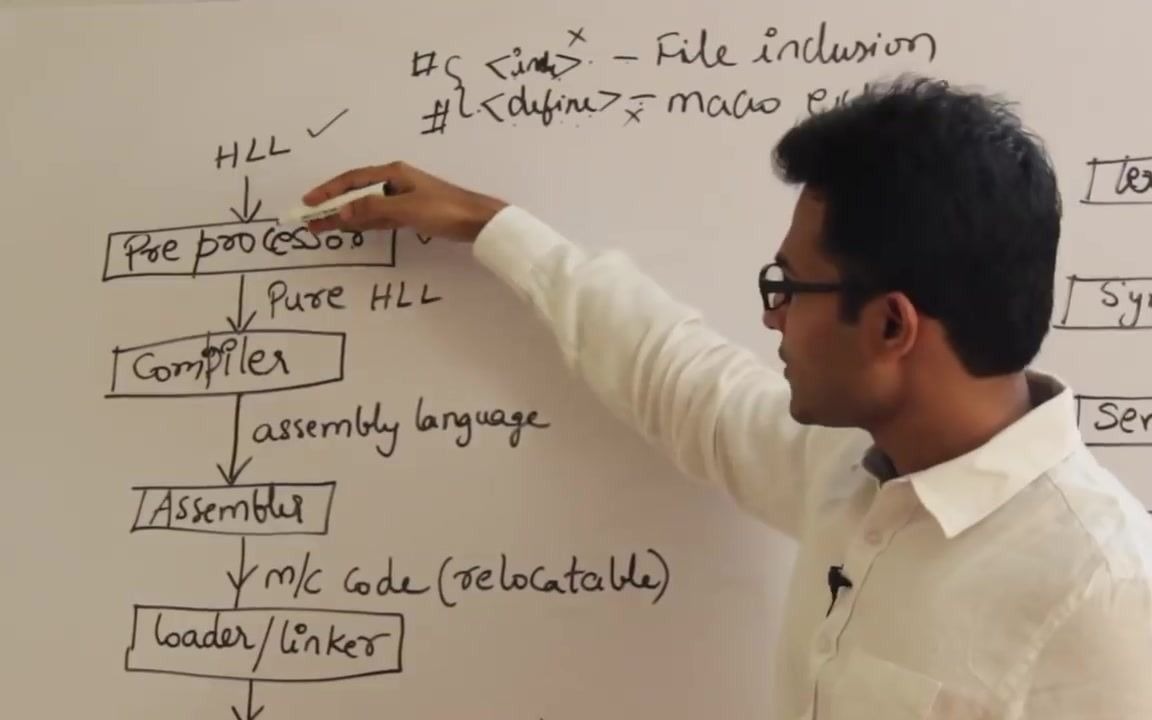 # <inde> - File inclusion
# <define> - macro
HLL
Pre processor
Pure HLL
Compiler
assembly language
Assembler
m/c code (relocatable)
loader/linker